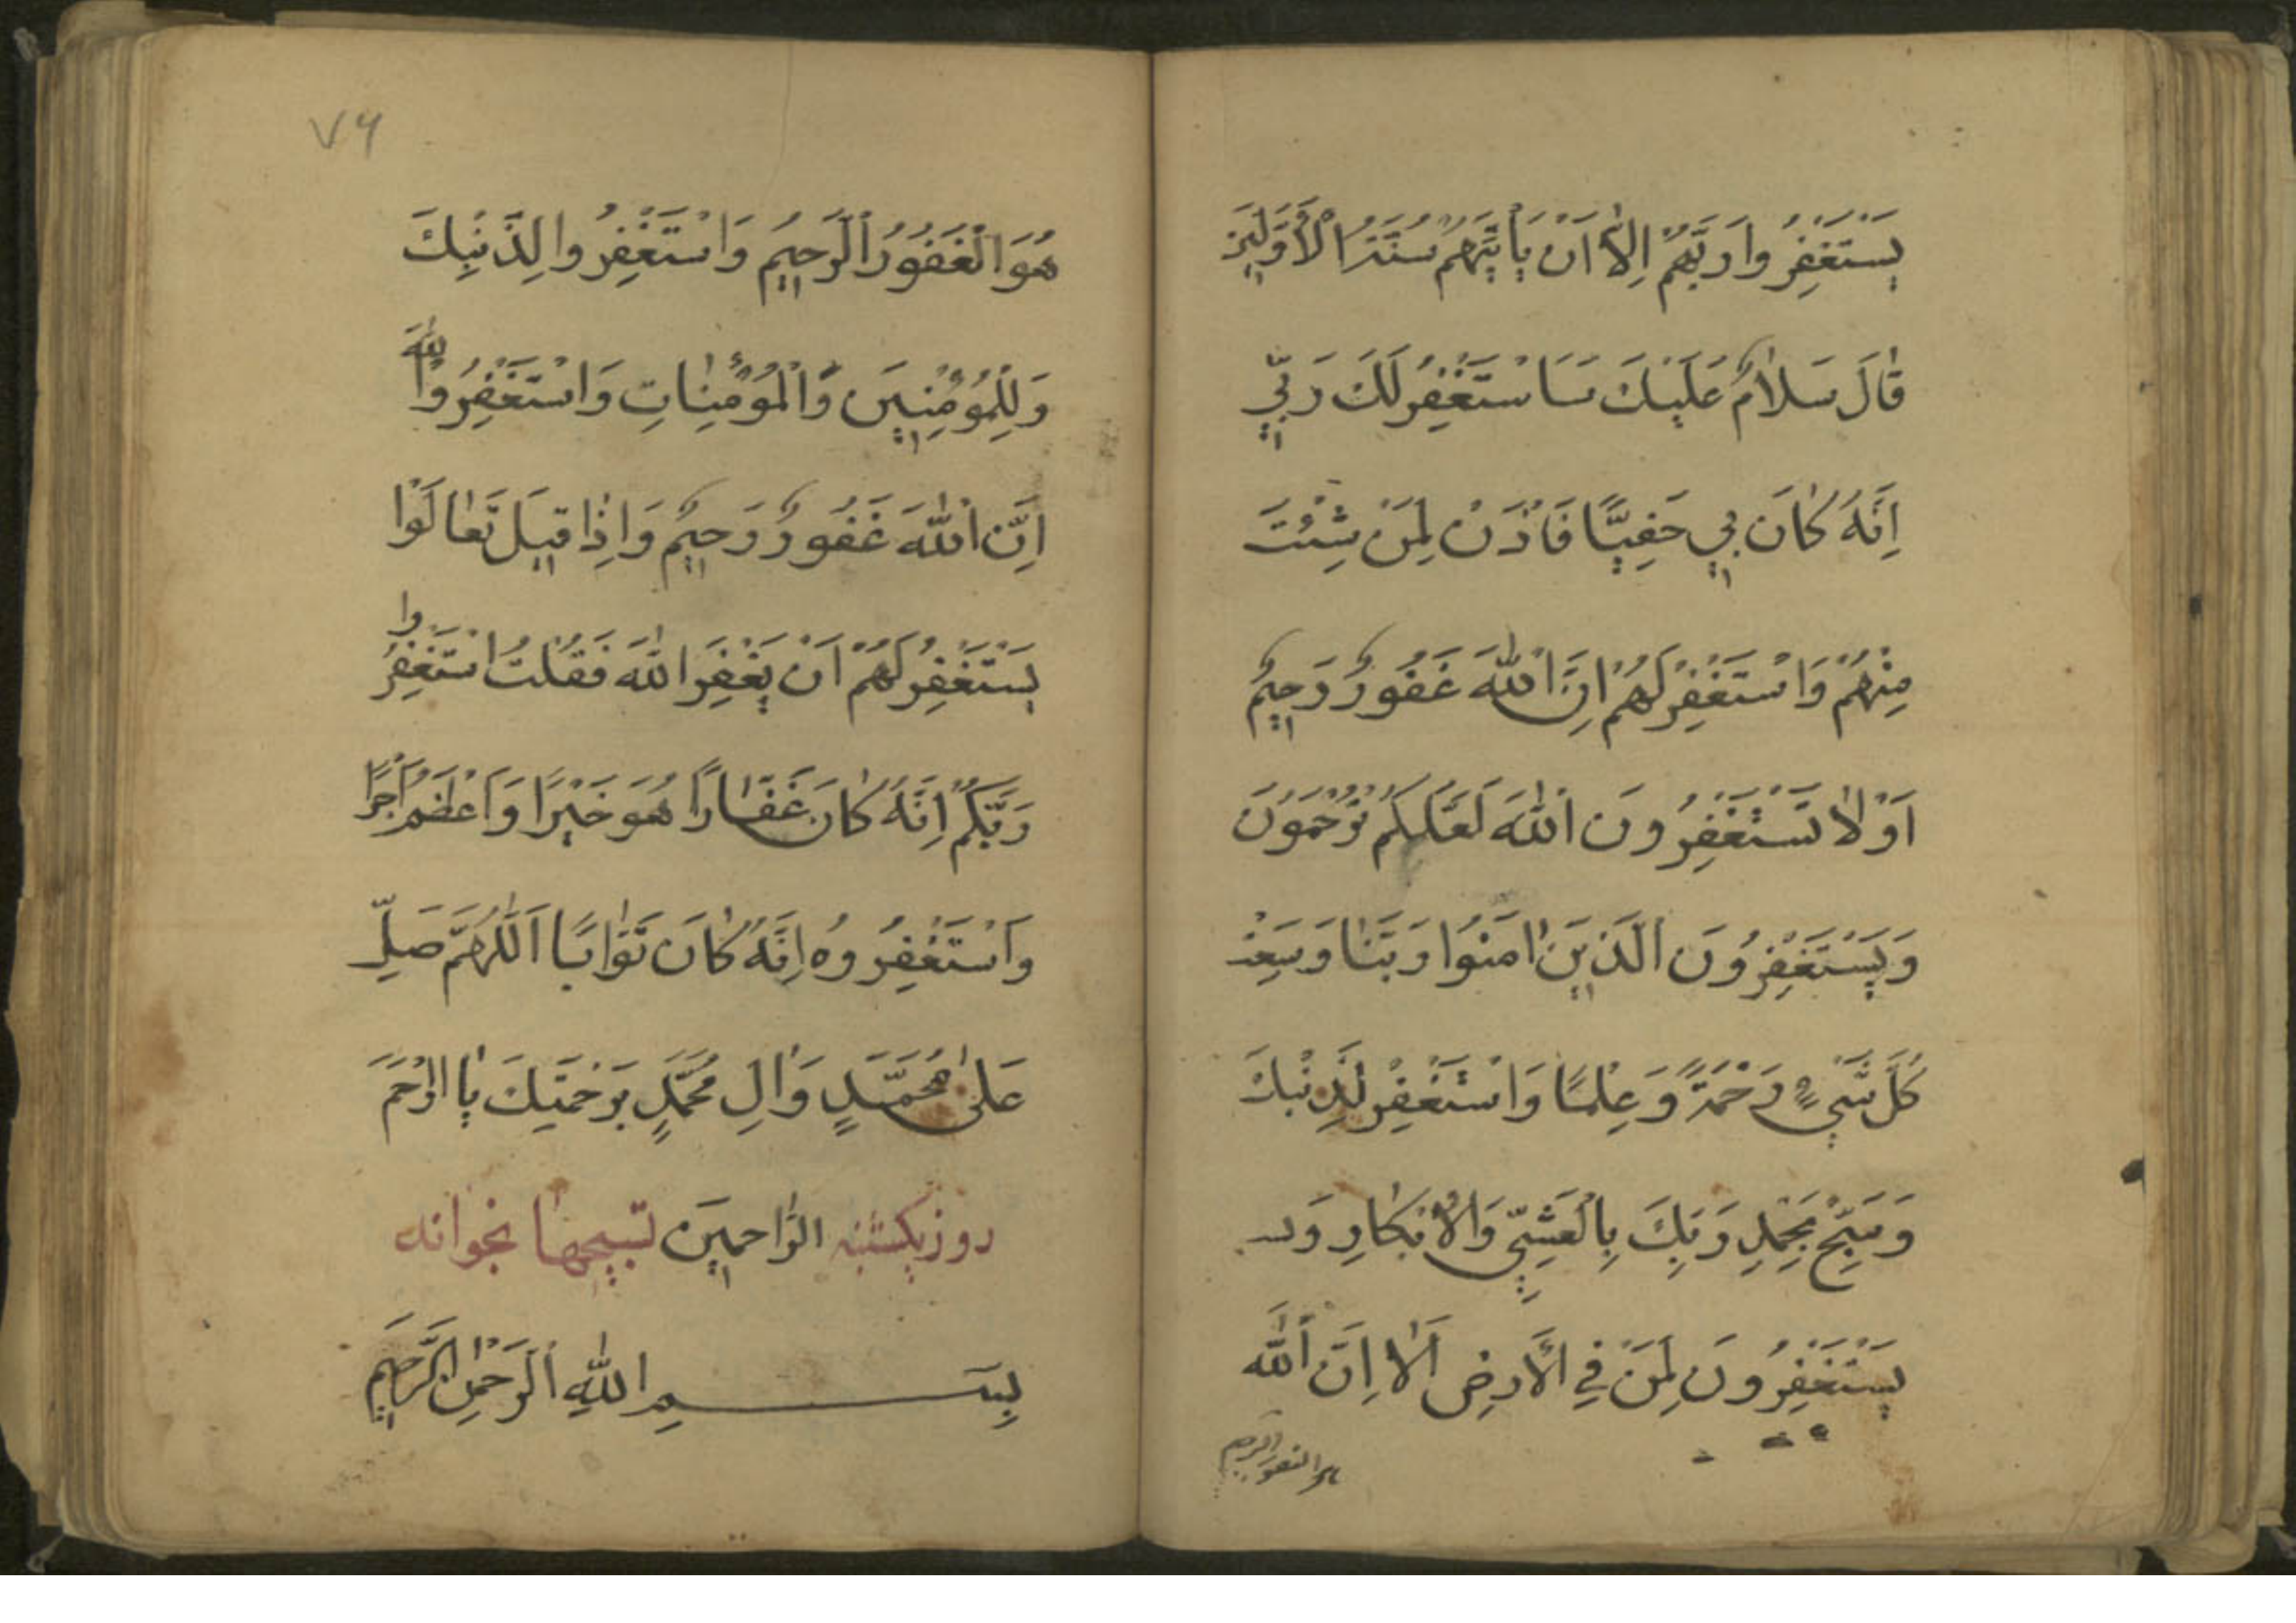 يَسْتَغْفِرُوا رَبَّهُمْ اِلّٰا اَنْ يَأْتِيَهُمْ سُنَّةُ الْاَوَّلِينَ
قٰالَ سَلٰامٌ عَلَيْكَ سَاَسْتَغْفِرُ لَكَ رَبِّي
اِنَّهُ كٰانَ بِي حَفِيًّا فَأْذَنْ لِمَنْ شِئْتَ
مِنْهُمْ وَاسْتَغْفِرْ لَهُمْ اِنَّ اللّٰهَ غَفُورٌ رَحِيمٌ
اَوْلٰا تَسْتَغْفِرُونَ اللّٰهَ لَعَلَّكُمْ تُرْحَمُونَ
وَيَسْتَغْفِرُونَ الَّذِينَ اٰمَنُوا رَبَّنٰا وَسِعْتَ
كُلَّ شَيْءٍ رَحْمَةً وَعِلْمًا وَاسْتَغْفِرْ لِذَنْبِكَ
وَسَبِّحْ بِحَمْدِ رَبِّكَ بِالْعَشِيِّ وَالْاِبْكٰارِ وَ
يَسْتَغْفِرُونَ لِمَنْ فِي الْاَرْضِ اَلٰا اِنَّ اللّٰه
هو الغفور الرحيم
٧٩
هُوَ الْغَفُورُ الرَّحِيمُ وَاسْتَغْفِرُوا لِذَنْبِكَ
وَلِلْمُؤْمِنِيينَ وَالْمُؤْمِنٰاتِ وَاسْتَغْفِرُوا اللّٰهَ
اِنَّ اللّٰهَ غَفُورٌ رَحِيمٌ وَاِذٰا قِيلَ تَعٰالَوْا
يَسْتَغْفِرْ لَهُمْ اَنْ يَغْفِرَ اللّٰهَ فَقُلْتُ اسْتَغْفِرُوا
رَبَّكُمْ اِنَّهُ كٰانَ غَفّٰارًا هُوَ خَيْرًا وَاَعْظَمُ اَجْرًا
وَاسْتَغْفِرُوهُ اِنَّهُ كٰانَ تَوّٰابًا اَللّٰهُمَّ صَلِّ
عَلىٰ مُحَمَّدٍ وَاٰلِ مُحَمَّدٍ بِرَحْمَتِكَ يٰا اَرْحَمَ
روز يكشنبه الرّٰاحِمِينَ تسبيحها بخواند
بِسْمِ اللّٰهِ الرَّحْمٰنِ الرَّحِيمِ